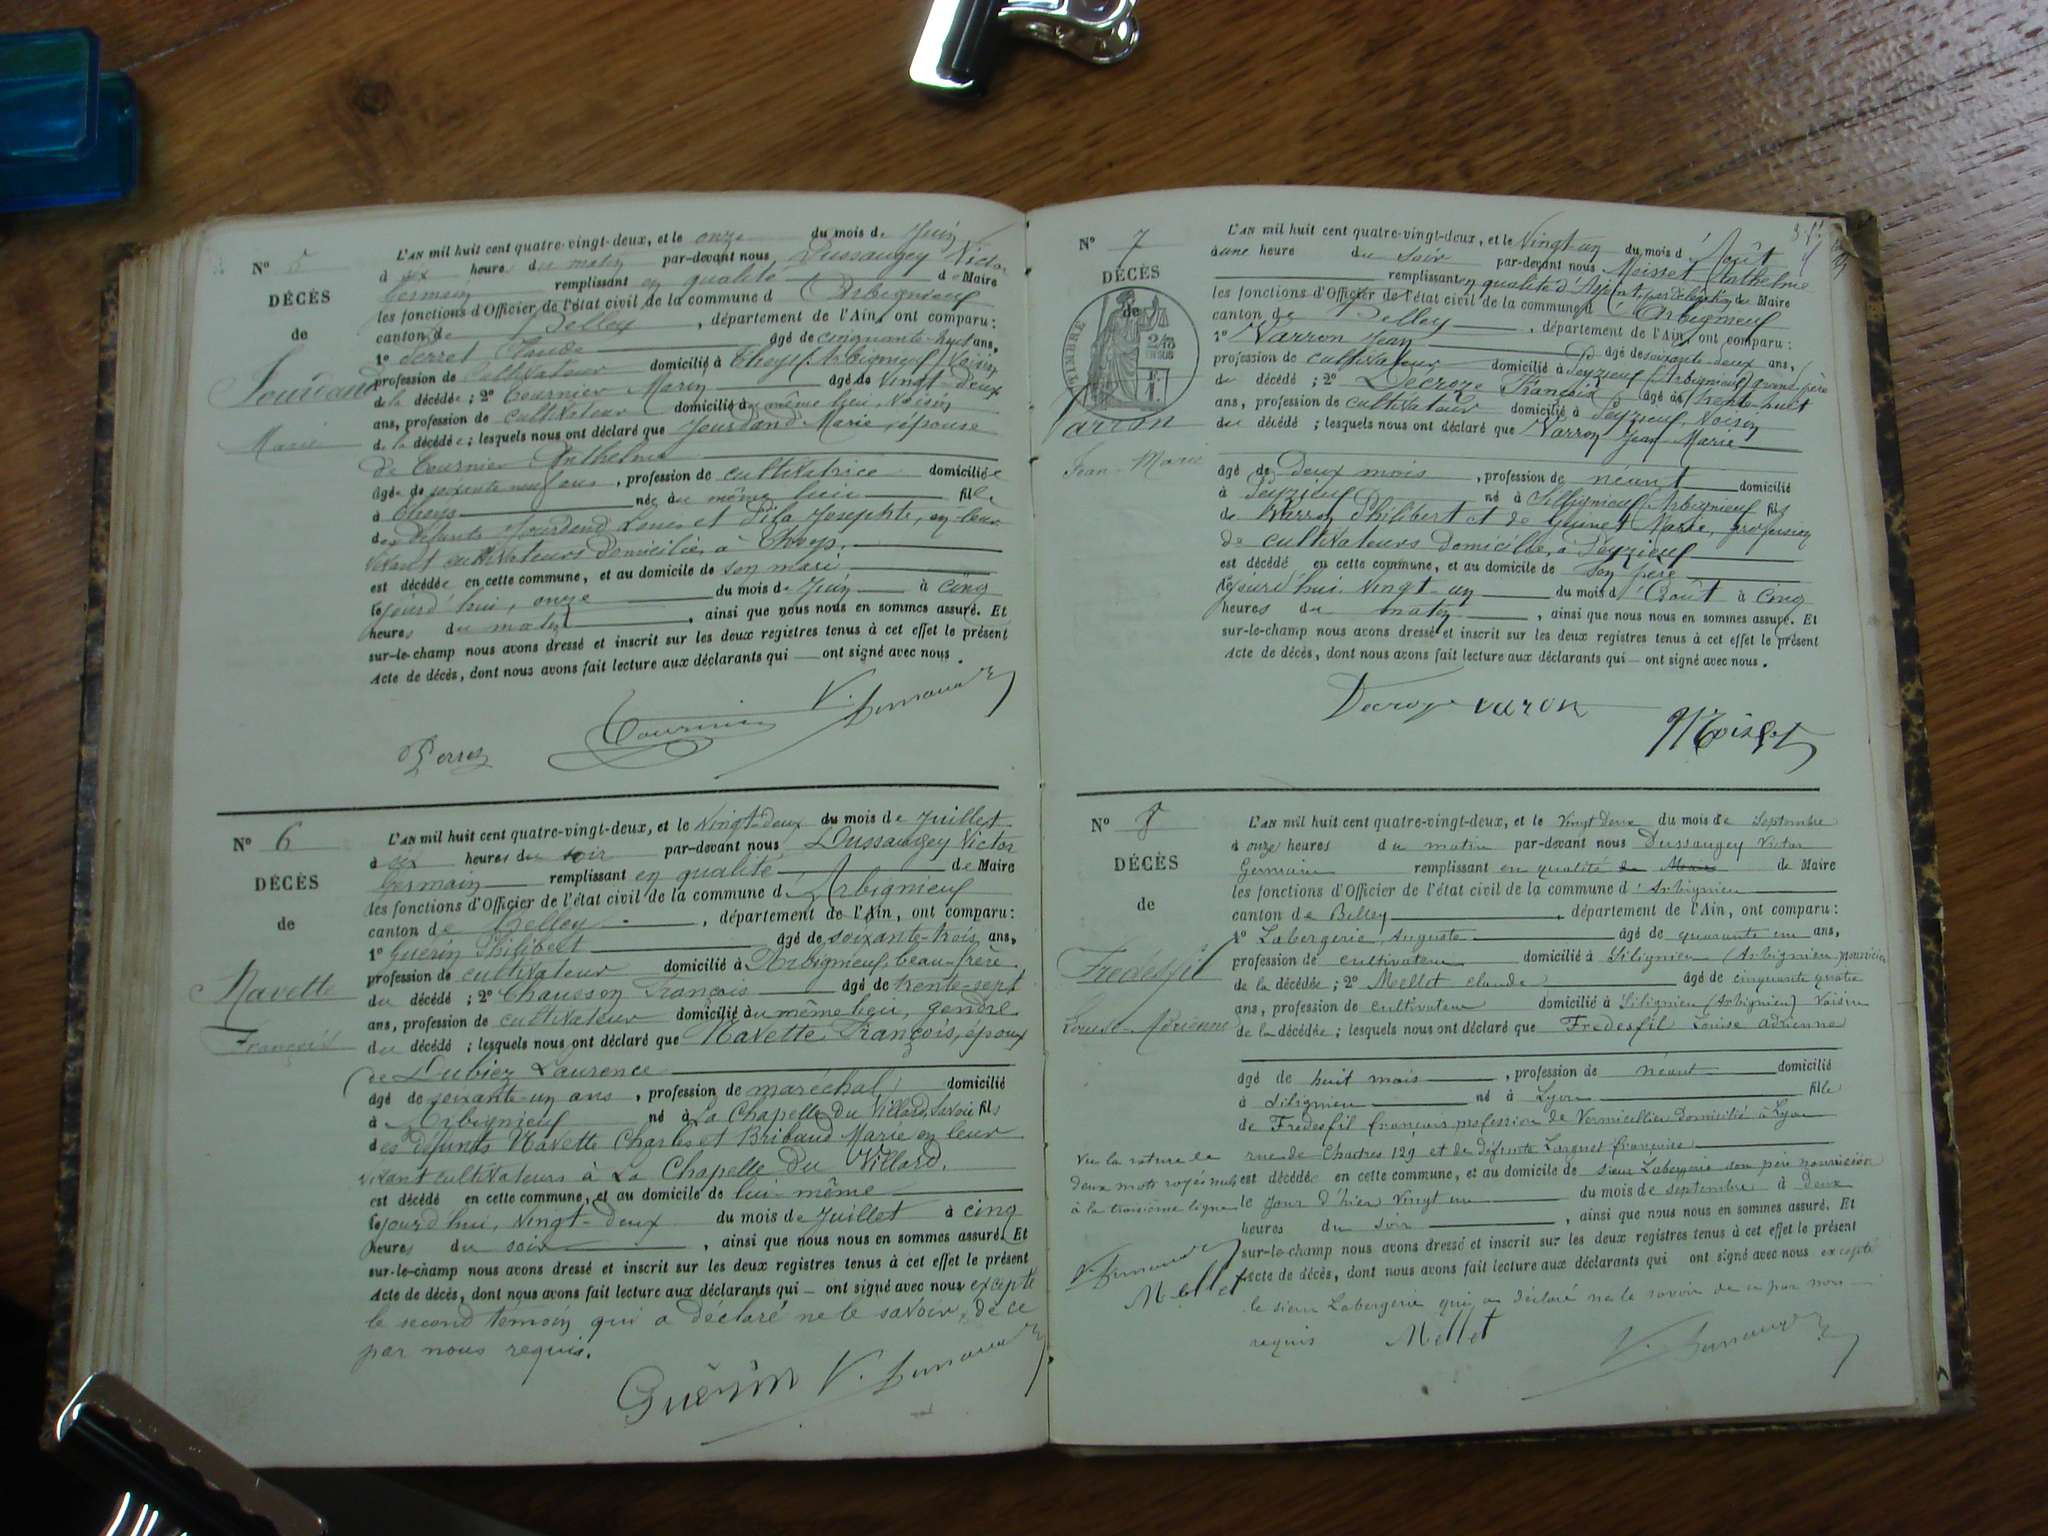 N° 5
DÉCÈS
de
Jourdand
Marie
L'AN mil huit cent quatre-vingt-deux, et le onze du mois de Juin
à six heures du matin par-devant nous Dussaugey Victor
Germain remplissant en qualité de Maire
les fonctions d'Officier de l'état civil de la commune d Arbignieu
canton de Belley, département de l'Ain, ont comparu:
1° Perret Claude âgé de cinquante-huit ans,
profession de cultivateur domicilié à Thoys (Arbignieu) Voisin
de la décédée; 2° Tournier Marin âgé de vingt-deux
ans, profession de cultivateur domicilié au même lieu, Voisin
de la décédée; lesquels nous ont déclaré que Jourdand Marie, épouse
de Tournier Anthelme
âgée de soixante neuf ans, profession de cultivatrice domiciliée
à Thoys née au même lieu fille
des défunts Jourdand Louis et Pila Josephte, en leur
vivant cultivateurs domiciliés à Thoys.
est décédée en cette commune, et au domicile de son mari
le jourd'hui, onze du mois de Juin à cinq
heures du matin, ainsi que nous nous en sommes assuré. Et
sur-le-champ nous avons dressé et inscrit sur les deux registres tenus à cet effet le présent
Acte de décès, dont nous avons fait lecture aux déclarants qui — ont signé avec nous.
Perret Tournier V.
N° 6
DÉCÈS
de
Navette
François
L'AN mil huit cent quatre-vingt-deux, et le Vingt-deux du mois de Juillet
à six heures du soir par-devant nous Dussaugey Victor
Germain remplissant en qualité de Maire
les fonctions d'Officier de l'état civil de la commune d'Arbignieu
canton de Belley, département de l'Ain, ont comparu:
1° Guérin Philibert âgé de soixante-trois ans,
profession de cultivateur domicilié à Arbignieu, beau-frère
du décédé; 2° Chausson François âgé de trente-sept
ans, profession de cultivateur domicilié au même lieu, gendre
du décédé; lesquels nous ont déclaré que Navette, François, époux
de Dubiez Laurence
âgé de soixante-un ans, profession de maréchal domicilié
à Arbignieu né à La Chapelle du Villard, Savoie fils
des défunts Navette Charles et Bribaud Marie en leur
vivant cultivateurs à La Chapelle du Villard.
est décédé en cette commune, et au domicile de lui-même
le jourd'hui, vingt-deux du mois de Juillet à cinq
heures du soir, ainsi que nous nous en sommes assuré. Et
sur-le-champ nous avons dressé et inscrit sur les deux registres tenus à cet effet le présent
Acte de décès, dont nous avons fait lecture aux déclarants qui — ont signé avec nous excepté
le second témoin qui a déclaré ne le savoir, de ce
par nous requis.
Guérin V.
N° 7
DÉCÈS
de
TIMBRE
Varron
Jean-Marie
L'AN mil huit cent quatre-vingt-deux, et le Vingt-un du mois d'Août
à une heure du soir par-devant nous Moisset Anthelme
remplissant en qualité d'Adjoint, par délégation du Maire
les fonctions d'Officier de l'état civil de la commune d'Arbignieu
canton de Belley, département de l'Ain, ont comparu:
1° Varron Jean âgé de soixante-deux ans,
profession de cultivateur domicilié à Peyzieu (Arbignieu) grand-père
du décédé; 2° Decroze François âgé de trente-huit
ans, profession de cultivateur domicilié à Peyzieu, Voisin
du décédé; lesquels nous ont déclaré que Varron Jean-Marie
âgé de deux mois, profession de néant domicilié
à Peyzieu né à Sillignieu (Arbignieu) fils
de Varron Philibert et de Guinet Marie, profession
de cultivateurs domiciliés à Peyzieu
est décédé en cette commune, et au domicile de son père
le jourd'hui vingt-un du mois d'Août à cinq
heures du matin, ainsi que nous nous en sommes assuré. Et
sur-le-champ nous avons dressé et inscrit sur les deux registres tenus à cet effet le présent
Acte de décès, dont nous avons fait lecture aux déclarants qui — ont signé avec nous.
Decroze varon
Moisset
N° 8
DÉCÈS
de
Fredesfil
Louise-Adrienne
L'AN mil huit cent quatre-vingt-deux, et le vingt deux du mois de Septembre
à onze heures du matin par-devant nous Dussaugey Victor
Germain remplissant en qualité de Maire de Maire
les fonctions d'Officier de l'état civil de la commune d'Arbignieu
canton de Belley, département de l'Ain, ont comparu:
1° Labergerie, Auguste âgé de quarante un ans,
profession de cultivateur domicilié à Silignieu (Arbignieu) nourricier
de la décédée; 2° Mellet claude âgé de cinquante quatre
ans, profession de cultivateur domicilié à Silignieu (Arbignieu) Voisin
de la décédée; lesquels nous ont déclaré que Fredesfil Louise adrienne
âgé de huit mois, profession de néant domicilié
à Silignieu né à Lyon fille
de Fredesfil françois profession de Vermicellier domicilié à Lyon
rue de Chartres 129 et de défunte Larguet françoise
est décédée en cette commune, et au domicile de sieur Labergerie son père nourricier
le jour d'hier vingt un du mois de septembre à deux
heures du soir, ainsi que nous nous en sommes assuré. Et
sur-le-champ nous avons dressé et inscrit sur les deux registres tenus à cet effet le présent
Acte de décès, dont nous avons fait lecture aux déclarants qui ont signé avec nous excepté
le sieur Labergerie qui a déclaré ne le savoir de ce par nous
requis Mellet V.
Vu la rature de
deux mots rayés nuls
à la troisième ligne
Mellet